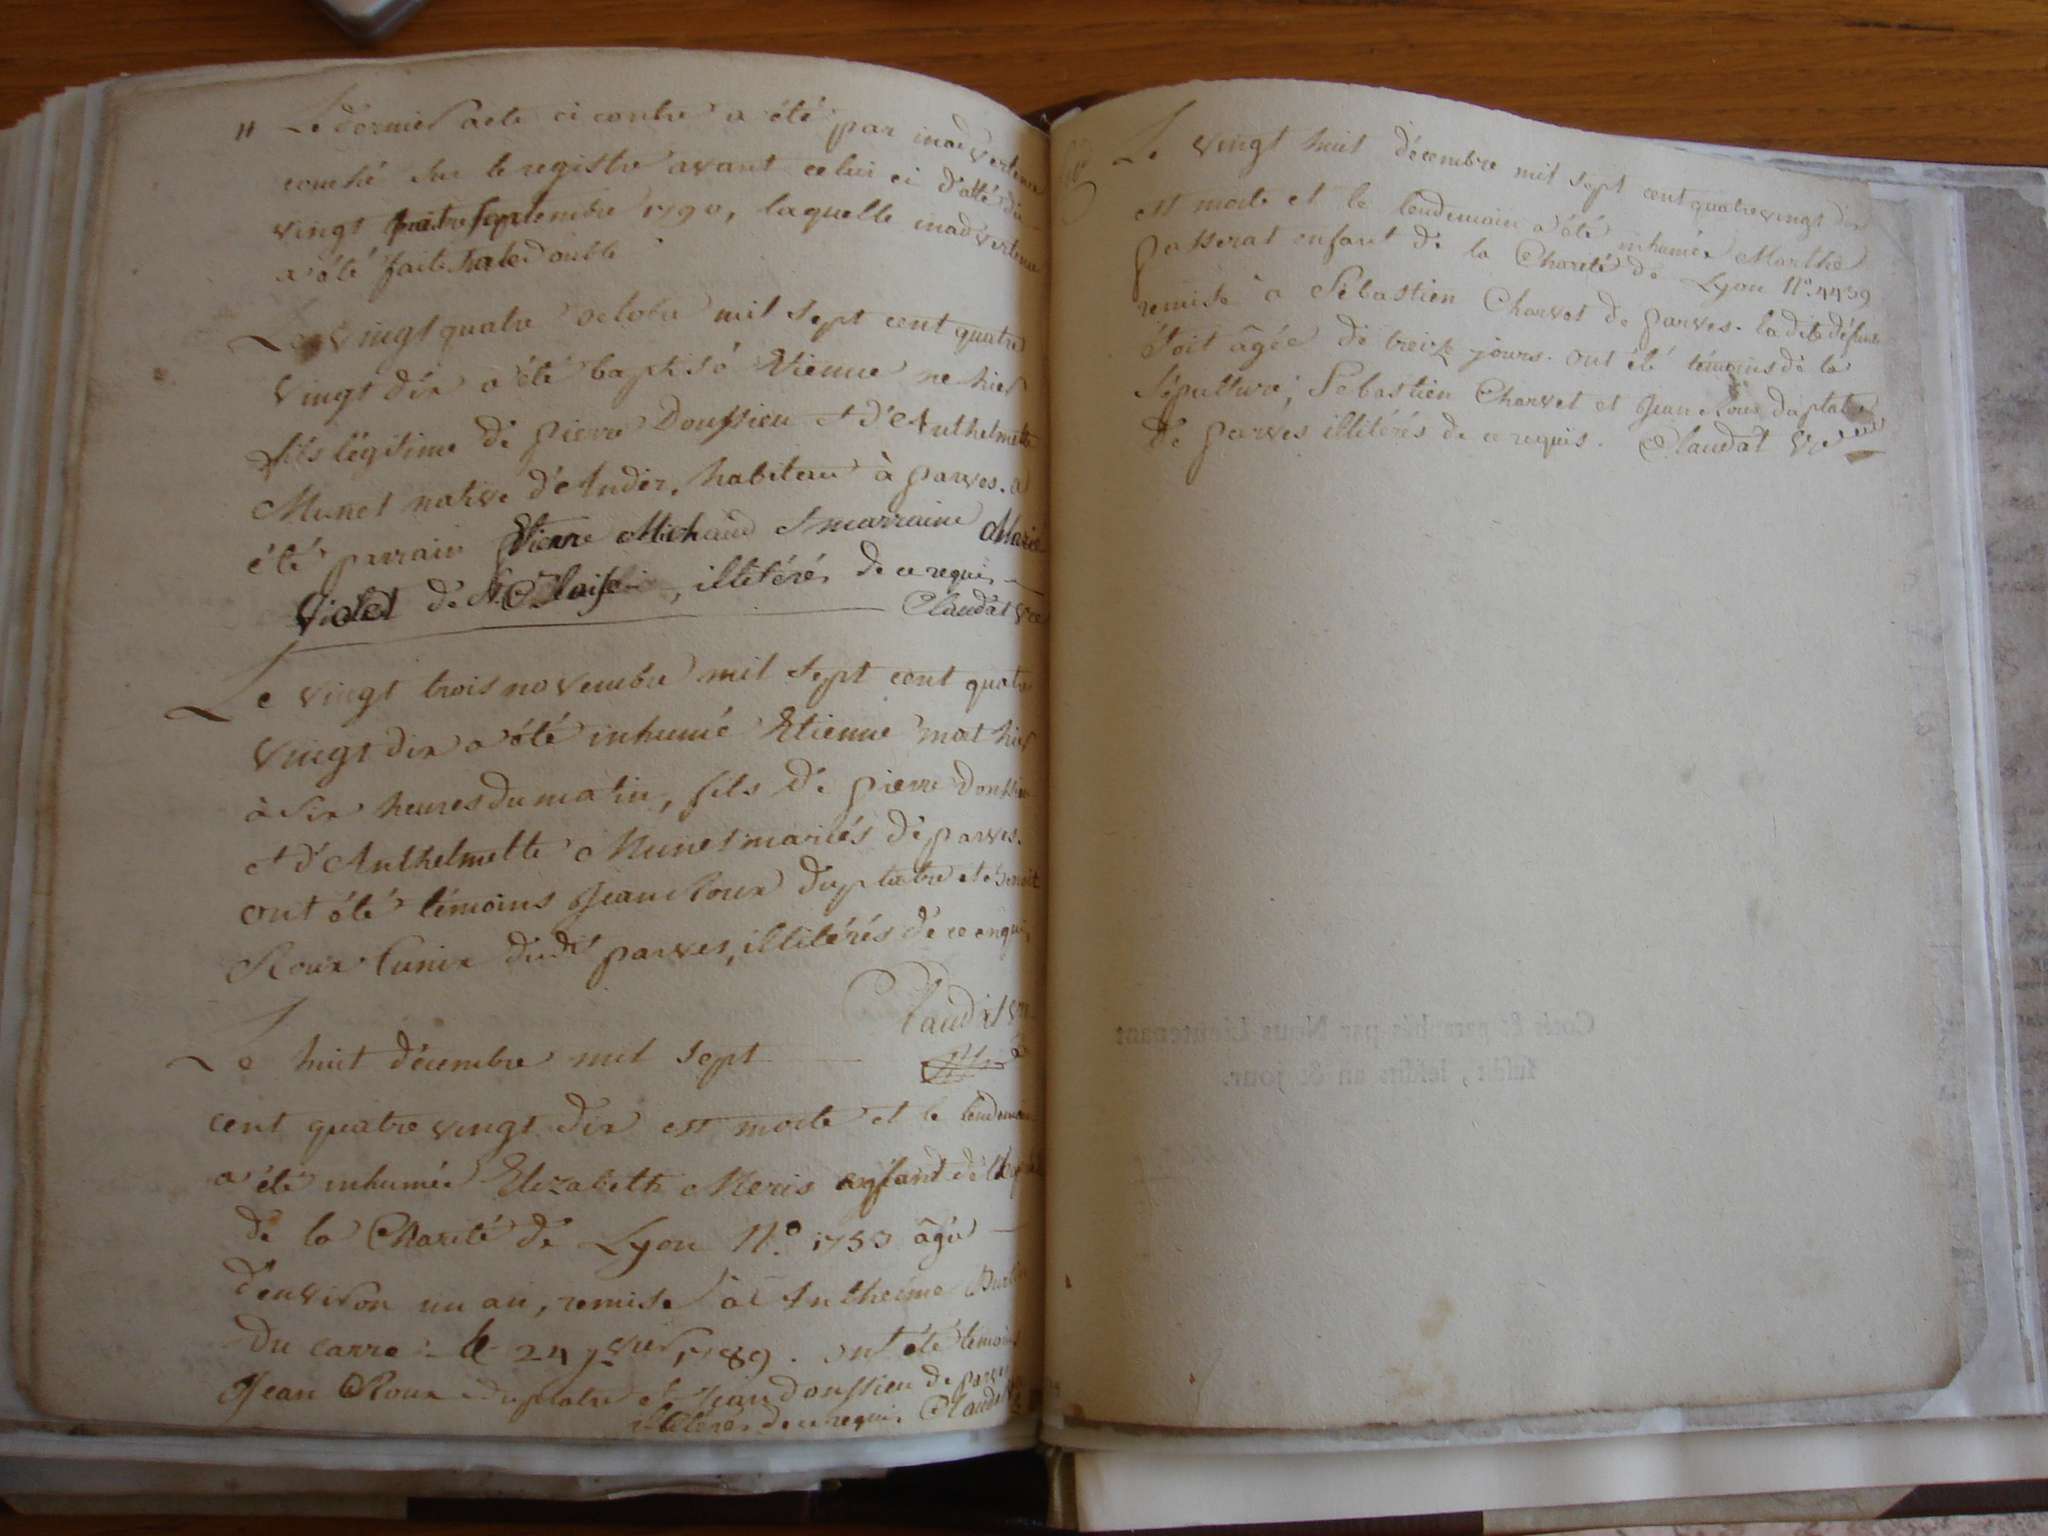 Le dernier acte ci contre a été par inadvertence
couché sur le registre avant celui ci d'atté du
vingt quatre septembre 1790, laquelle inadvertence
a été faite double
Le vingt quatre octobre mil sept cent quatre
vingt dix a été baptisé Etienne ne hier
fils légitime de pierre Doussieu et d'Anthelmette
Munet native d'Andix, habitans à parves. a
été parrain Etienne Michaud et marraine Marie
Violet de St, illitérés de ce requis
Claudat vre
Le vingt trois novembre mil sept cent quatre
vingt dix a été inhumé Etienne mort hier
à six heures du matin, fils de pierre Doussieu
et d'Anthelmette Munet mariés de parves.
ont été témoins Jean Roux duplatre et Benoit
Roux dudt parves, illitérés de ce enquis
Claudat vre
Le huit décembre mil sept
cent quatre vingt dix est morte et le lendemain
a été inhumée Elizabeth Meris enfant de
de la Charité de Lyon N.º 1753 âgée
d'environ un an, remise à Anthelme
Du carre le 24 jvier 1789. ont été témoins
Jean Roux duplatre et Jean doussieu de parves
illitérés de ce requis Claudat
Le vingt huit décembre mil sept cent quatre vingt dix
est morte et le lendemain a été inhumée Marthe
passerat enfant de la Charité de Lyon N.º 4439
remise a Sébastien Charvet de parves. la dite défunte
étoit âgée de treize jours. ont été témoins de la
sépulture, Sébastien Charvet et Jean Roux duplatre
de parves illitérés de ce requis. Claudat vre
Coté & paraphé par Nous Lieutenant
susdit, lesdits an & jour.